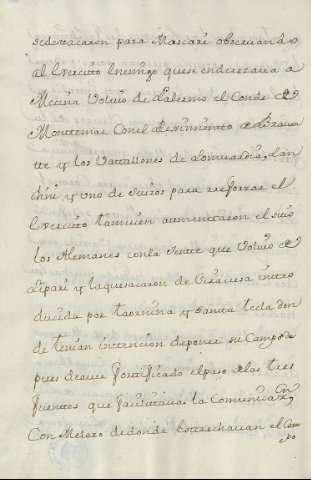 se destacaron para Mascari obseruando
al Exercito Enemigo quien enderezaua a
Mecina Voluio de Palermo el Conde de
Montemar Con el Reximiento de Braua
te y los Vattallones de Lomuardia,
y uno de suizos para reforzar el
Exercito tamuien aumentaron el suio
los Alemanes con la Jente que Voluio de
Lipari y la que sacaron de Siracusa intro
ducida por taormina y Santa tecla don
de tenian intencion de poner su Campo de
pues de auer fortificado el paso de las tres
fuentes que la Comunica.on
Con Melazo de donde Extrechauan el Cam
po